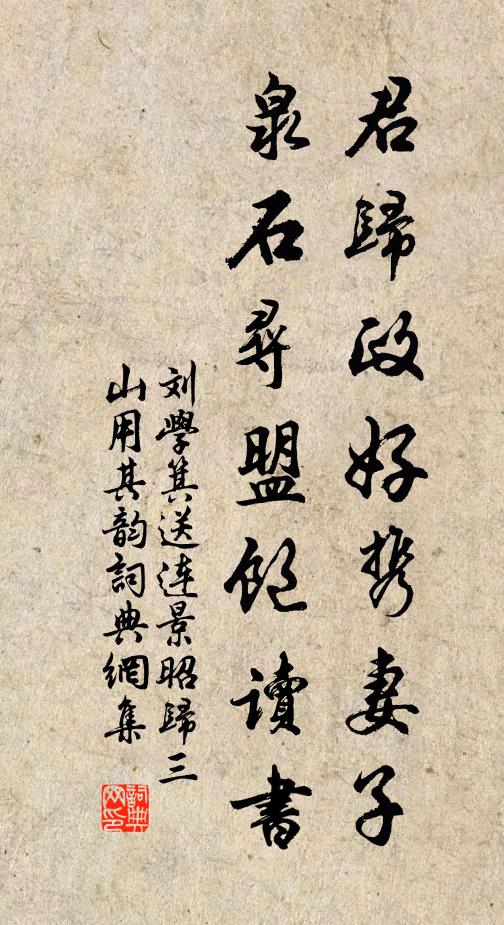 君歸政好携妻子
泉石尋盟飽讀書
刘學箕送連景昭歸三
山用其韵詞典網集
詞典
网印